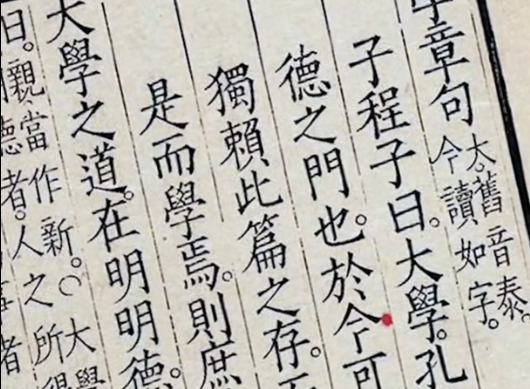 學章句
太。舊音泰。
今讀如字。
子程子曰。大學。孔
德之門也。於今可
獨賴此篇之存。
是而學焉。則庶
大學之道。在明明德。
曰。親。當作新。○大學
德者。人之所得
者